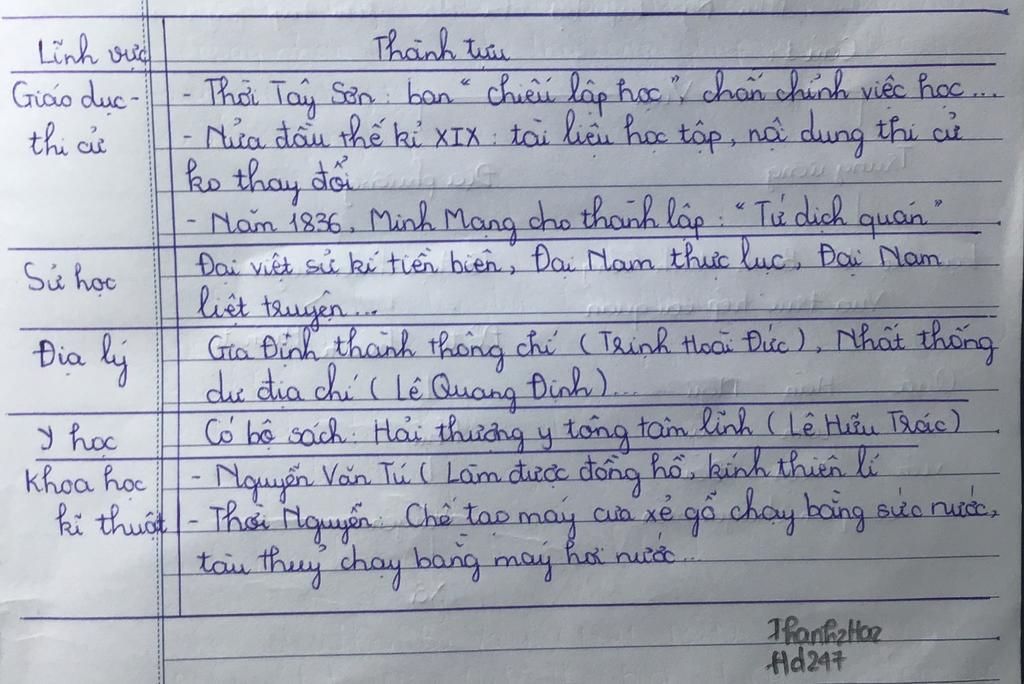 Lĩnh vực Thành tựu
Giáo dục - - Thời Tây Sơn: ban " chiếu lập học ", chấn chỉnh việc học...
thi cử - Nửa đầu thế kỉ XIX: tài liệu học tập, nội dung thi cử
ko thay đổi
- Năm 1836, Minh Mạng cho thành lập: " Tứ dịch quán "
Sử học Đại việt sử kí tiền biên, Đại Nam thực lục, Đại Nam
liệt truyện...
Địa lý Gia Định thành thông chí ( Trịnh Hoài Đức ), Nhất thống
dư địa chí ( Lê Quang Định )...
Y học Có bộ sách: Hải thượng y tông tâm lĩnh ( Lê Hữu Trác )
Khoa học - Nguyễn Văn Tú ( Làm được đồng hồ, kính thiên lí
kĩ thuật - Thời Nguyễn: Chế tạo máy cưa xẻ gỗ chạy bằng sức nước,
tàu thuỷ chạy bằng máy hơi nước...
Thanhz Hoz
Hd247